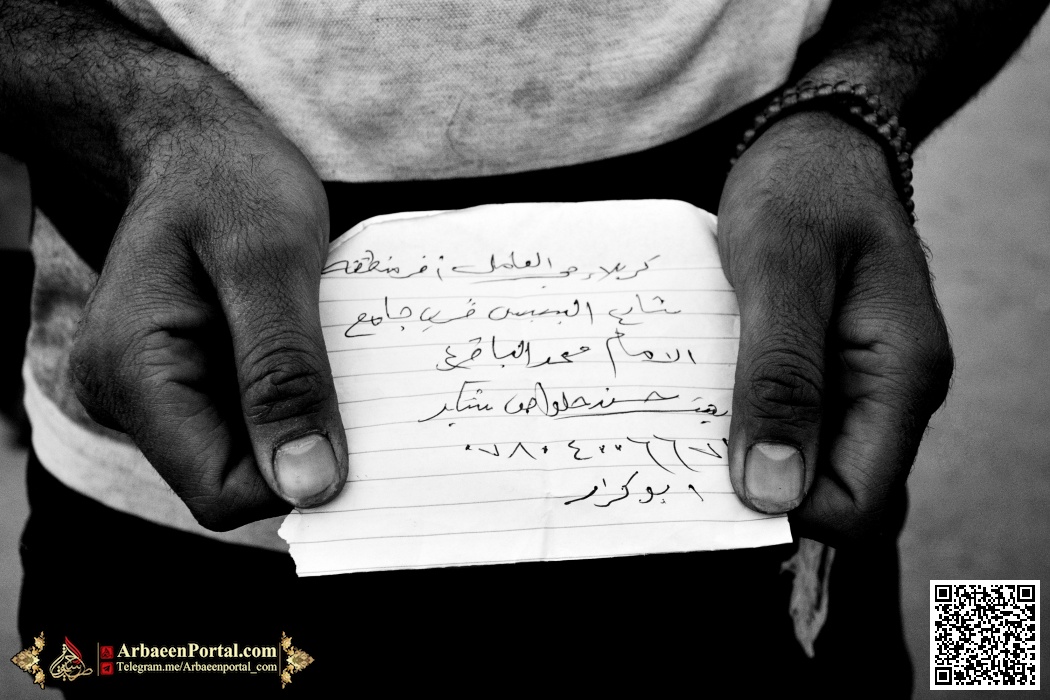 كربلاء حي العامل أخر منطقه
شارع البيبسي قرب جامع
الامام محمد الباقر ع
بيت شاكر
٠٧٨٠٤٠٠٦٦٧
ابو كرار
ArbaeenPortal.com
Telegram.me/Arbaeenportal_com